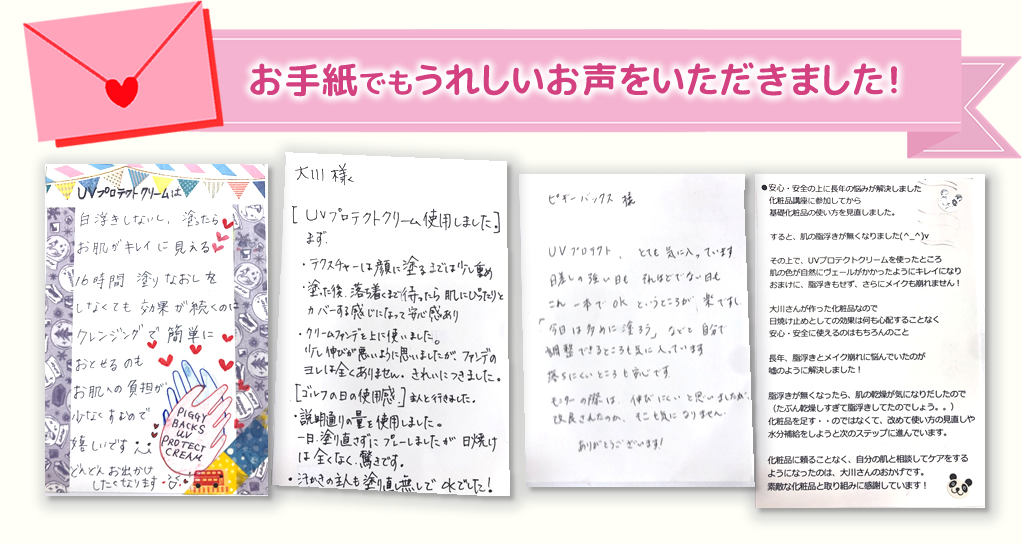 お手紙でもうれしいお声をいただきました!
UVプロテクトクリームは
白浮きしないし、塗ったら
お肌がキレイに見える
16時間 塗りなおしを
しなくても 効果が続くのは
クレンジングで 簡単に
おとせるのも
お肌への負担が
少なくすむので
嬉しいです
どんどんお出かけ
したくなります
PIGGY
BACKS
UV
PROTECT
CREAM
大川 様
[UVプロテクトクリーム使用しました。]
まず、
・テクスチャーは顔に塗るまでは少し重め
・塗った後、落ち着くまで待ったら肌にぴったりと
カバーする感じになって安心感あり
・クリームファンデを上に使いました。
少し伸びが悪いように思いましたが、ファンデの
ヨレは全くありません。きれいにつきました。
[ゴルフの日の使用感] 主人と行きました。
・説明通りの量を使用しました。
一日、塗り直さずにプレーしましたが 日焼け
は全くなく、驚きです。
・汗かきの主人も塗り直し無しでOKでした!
ピギーバックス 様
UVプロテクト、とても気に入っています
日差しの強い日も それほどでない日も
これ一本でOK というところが、楽ですし
「今日は多めに塗ろう」などと 自分で
調整できるところも気に入っています
落ちにくいところも安心です
もらった際は、伸びにくいと思いましたが、
改良されたのか、そこも気になりません。
ありがとうございます!
●安心・安全の上に長年の悩みが解決しました
化粧品講座に参加してから
基礎化粧品の使い方を見直しました。
すると、肌の脂浮きが無くなりました(^_^)v
その上で、UVプロテクトクリームを使ったところ
肌の色が自然にヴェールがかかったようにキレイになり
おまけに、脂浮きもせず、さらにメイクも崩れません!
大川さんが作った化粧品なので
日焼け止めとしての効果は何も心配することなく
安心・安全に使えるのはもちろんのこと
長年、脂浮きとメイク崩れに悩んでいたのが
嘘のように解決しました!
脂浮きが無くなったら、肌の乾燥が気になりだしたので
(たぶん乾燥しすぎて脂浮きしてたのでしょう。。)
化粧品を足す・・のではなくて、改めて使い方の見直しや
水分補給をしようと次のステップに進んでいます。
化粧品に頼ることなく、自分の肌と相談してケアをする
ようになったのは、大川さんのおかげです。
素敵な化粧品と取り組みに感謝しています!